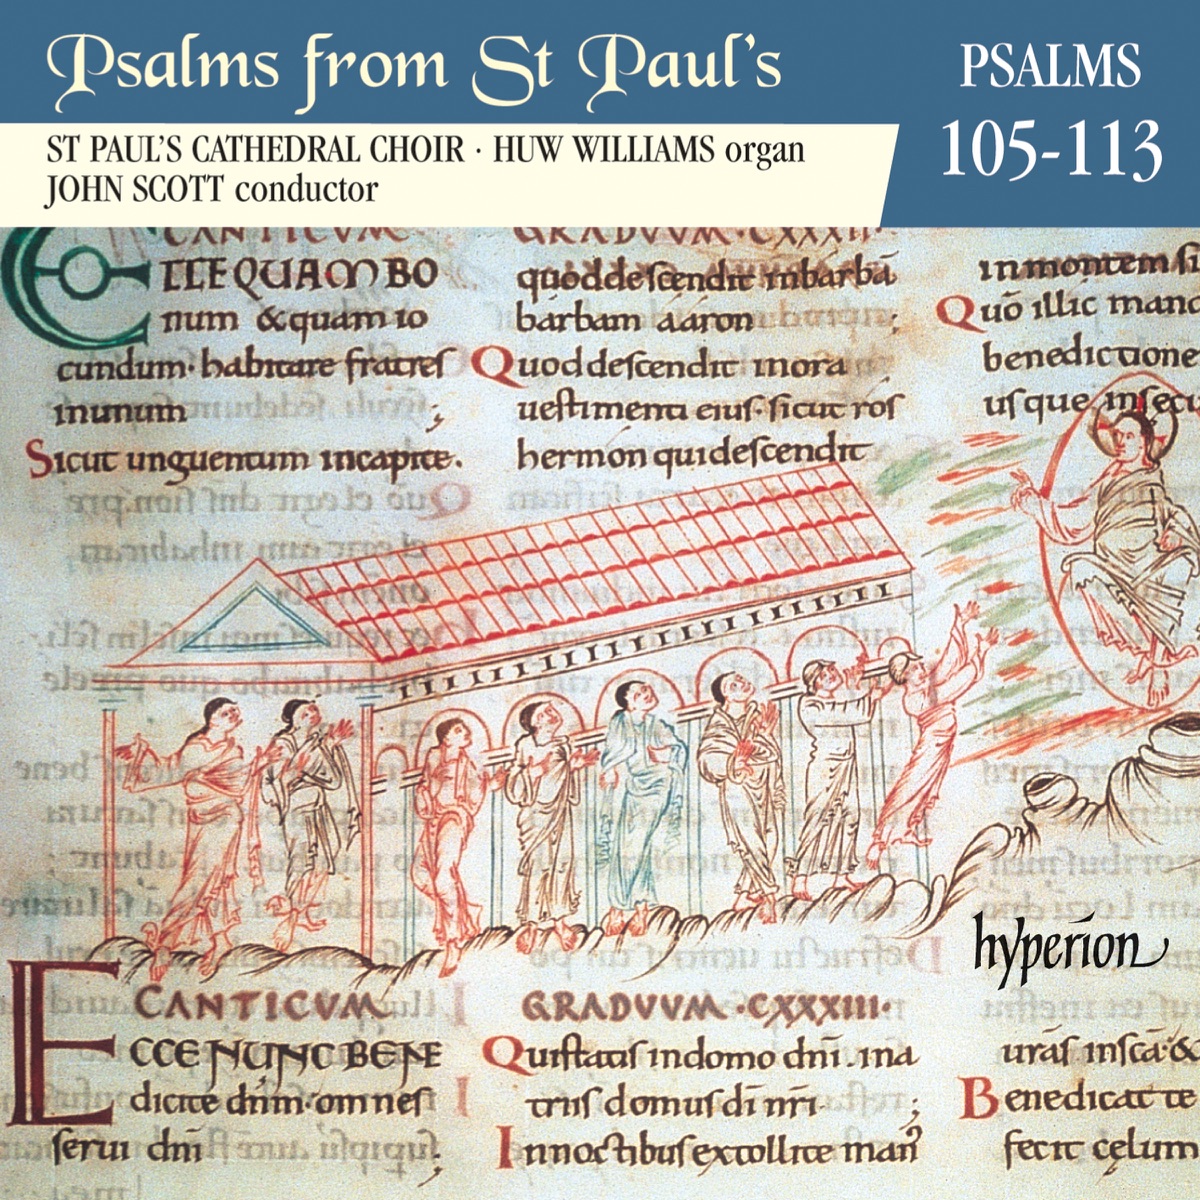 Psalms from St Paul's
PSALMS
105-113
ST PAUL'S CATHEDRAL CHOIR · HUW WILLIAMS organ
JOHN SCOTT conductor
CANTICVM
GRADVVM · CXXXII
ECCE QUAM BO
num & quam io
cundum · habitare fratres
inunum ;
Sicut unguentum incapite.
quod descendit inbarbā
barbam aaron ;
Quod descendit inora
uestimenti eius · sicut ros
hermón qui descendit
inmontem si
Quō illic mand
benedictione
usque insecu
hyperion
CANTICVM
GRADVVM · CXXXIII ·
ECCE NUNC BENE
dicite dn̄m · omnes
serui dn̄i ;
Qui statis indomo dn̄i · ina
triis domus dī nr̄i ;
In noctibus extollite man
urās inscā · &
Benedicat te
fecit cęlum